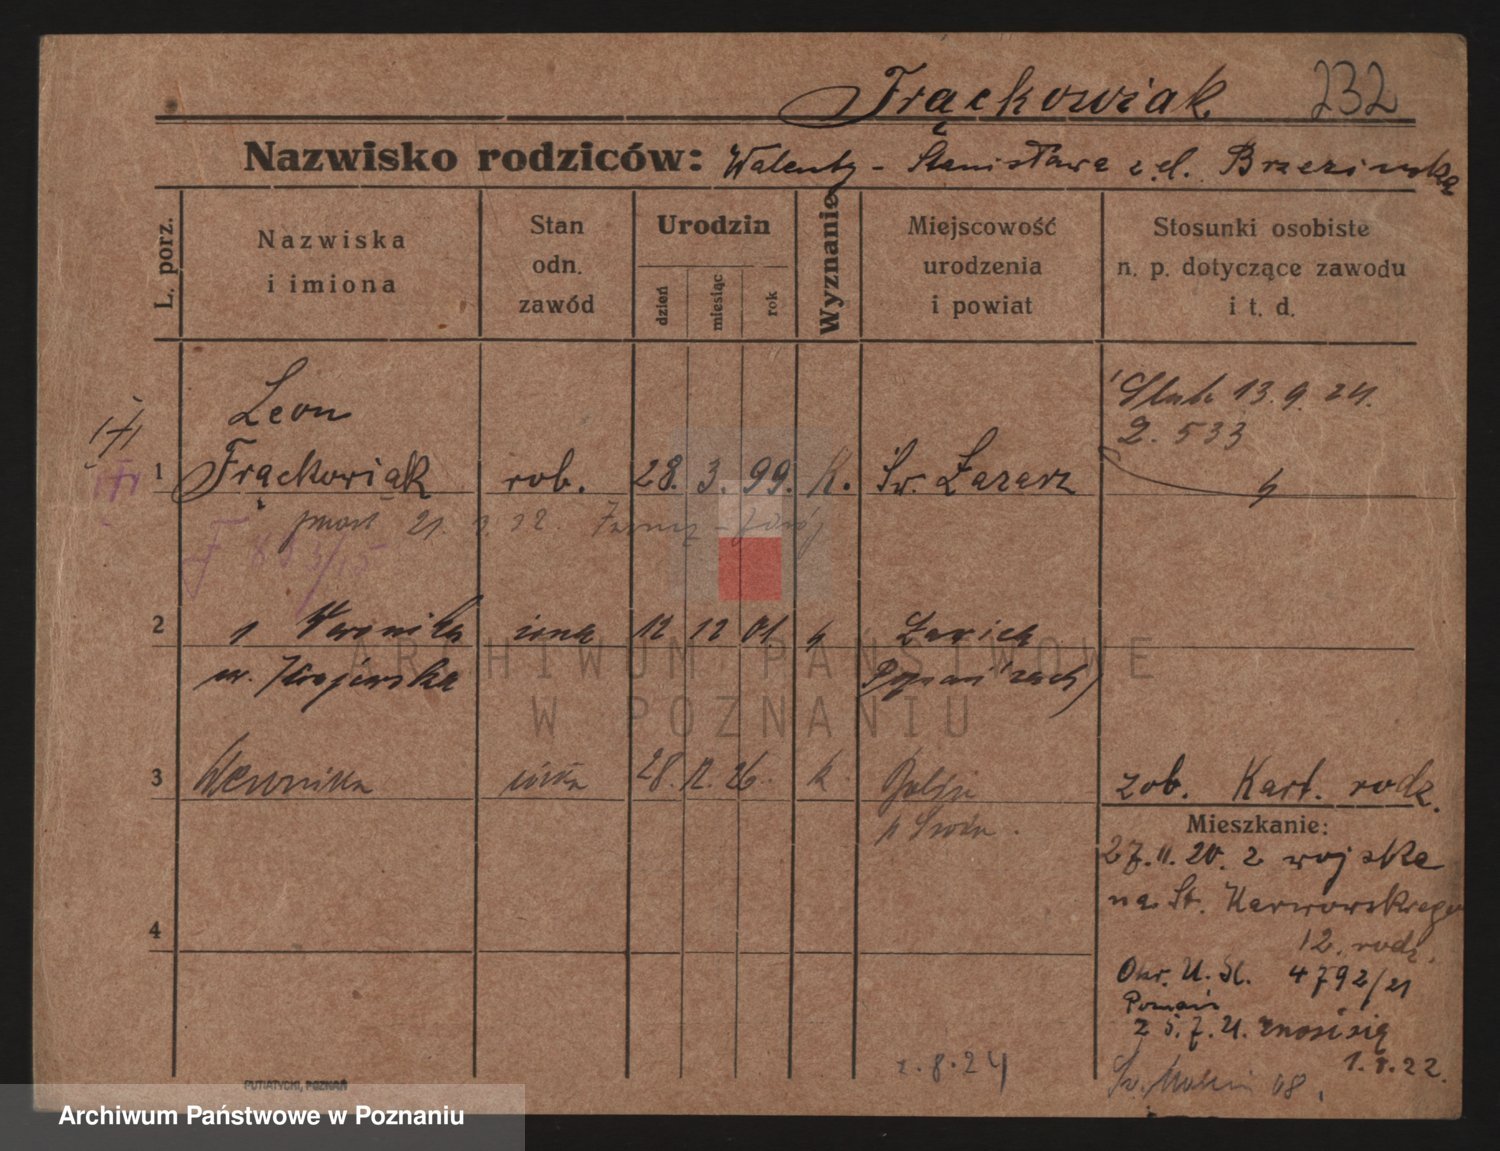 Frąckowiak 232
Nazwisko rodziców: Walenty - Stanisława z d. Brzezińska
L. porz.
Nazwiska
i imiona
Stan
odn.
zawód
Urodzin
dzień
miesiąc
rok
Wyznanie
Miejscowość
urodzenia
i powiat
Stosunki osobiste
n. p. dotyczące zawodu
i t. d.
Leon
1 Frąckowiak rob. 28. 3. 99. K. Św. Łazarz
Ślub 13.9.24.
2. 533
21.
2 Weronika żona 12 12 01.
ur. Krajewska
3 Weronika córka 28. 12. 26. k
4
zob. Kart. rodz.
Mieszkanie:
27.11.20. z wojska
na St. Karwowskiego
12. rodz.
Okr. U. St. 4792/21
Poznań
25.7.21. znosi się
1.8.22.
Św. 08.
1.8.24
PUTIATYCKI, POZNAŃ
ARCHIWUM PAŃSTWOWE
W POZNANIU
Archiwum Państwowe w Poznaniu